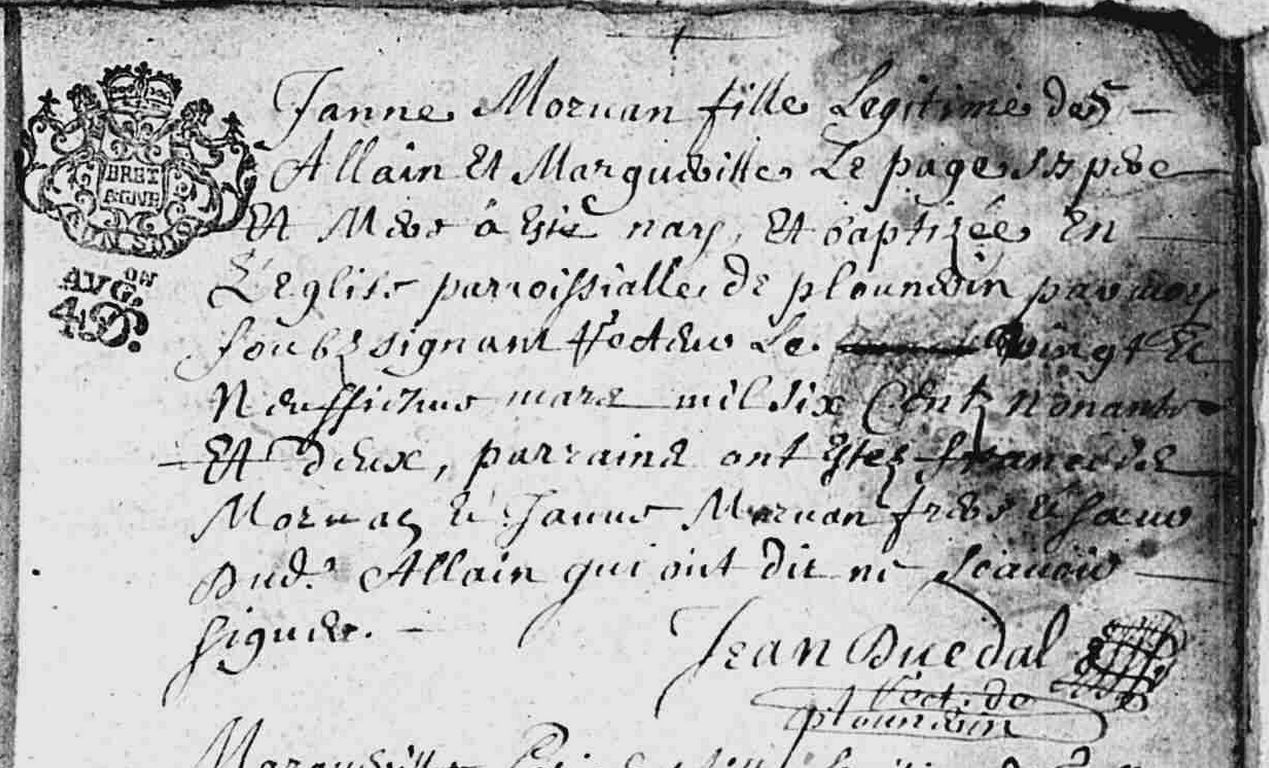 BRET
AGNE
AVG.ON
Janne Moruan fille Legitime des
Allain Et Margueritte Le page ses pere
Et Mere à Esté nay, Et baptizée En
L'Eglise parroissialle de plounevin par moy
soubzsignant Recteur Le vingt Et
Neuffiesme mars mil six Centz nonante
Et deux, parrains ont Estez
Moruan Et Janne Moruan frere Et soeur
Dud.t Allain qui ont dit ne scauoir
signer.
Jean Duedal
Rect. de
plounevin